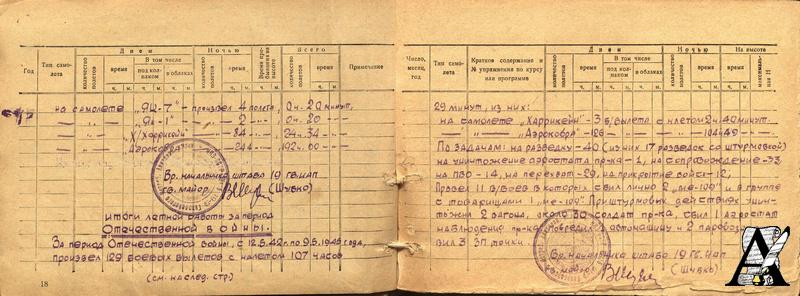 Год
Тип самолета
Днем
количество полетов
время
В том числе
под колпаком
в облаках
Ночью
количество полетов
время
Время пребывания на высоте
Всего
количество полетов
время
Примечание
ч. м.
на самолете „Як-7" - произвел 4 полета, 0 ч. 20 минут,
„Як-1" 2 0 ч. 20
„Харрикейн" 84 24 ч. 34
244 192 ч. 00
Вр. начальника штаба 19 ГВ. ИАП
гв. майор (Шувко)
ИТОГИ ЛЕТНОЙ РАБОТЫ ЗА ПЕРИОД
ОТЕЧЕСТВЕННОЙ ВОЙНЫ.
За период Отечественной войны, с 12.5.42 г. по 9.5.1945 года,
произвел 129 боевых вылетов с налетом 107 часов
(см. на след. стр.)
18
Число, месяц, год
Тип самолета
Краткое содержание и № упражнения по курсу или программе
Днем
количество полетов
время
В том числе
под колпаком
в облаках
Ночью
количество полетов
время
На высоте
время
максимальная Н
ч. м.
29 минут, из них:
на самолете „Харрикейн" - 3 б/вылета с налетом 2 ч. 40 минут.
„Аэрокобра" - 126 104 ч 49
По задачам: на разведку - 40 (из них 17 разведок со штурмовкой)
на уничтожение аэростата пр-ка - 1, на сопровождение - 33
на ПВО - 14, на перехват - 29, на прикрытие войск - 12,
Провел 11 в/боев в которых сбил лично 2 „ме-109" и в группе
с товарищами 1 „ме-109". При штурмовых действиях уничтожил 2 вагона, около 30 солдат пр-ка, сбил 1 аэростат
наблюдения пр-ка. Повредил 1 автомашину и 2 паровоза
3 ЗП точки.
Вр. начальника штаба 19 ГВ. ИАП
гв. майор (Шувко)